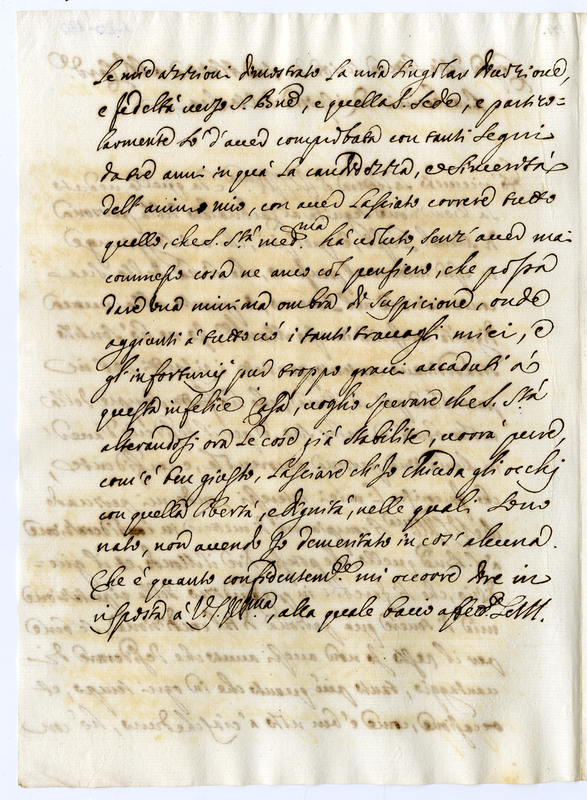 le mie azzioni dimostrato la mia singolar devozione,
e fedeltà verso S. Bne, e questa S. Sede, e partico=
larmente so' d'aver comprobata con tanti segni
da tre anni in quà la candidezza, e sincerità
dell'animo mio, con aver lasciato correre tutto
quello, che S. Stà medma hà voluto, senz'aver mai
commesso cosa ne anco col pensiero, che possa
dare una minima ombra di suspicione, onde
aggiunti à tutto ciò i tanti travagli miei, e
gl'infortunij pur troppo gravi accaduti à
questa infelice Casa, voglio sperare che S. Stà
alterandosi ora le cose già stabilite, vorrà pure,
com'è ben giusto, lasciare ch'Io chiuda gli occhj
con quella libertà, e dignità, nelle quali sono
nato, non avendo Io demeritato in cos' alcuna.
Che è quanto confidentemte mi occorre dire in
risposta à V.S. Illma, alla quale bacio affe